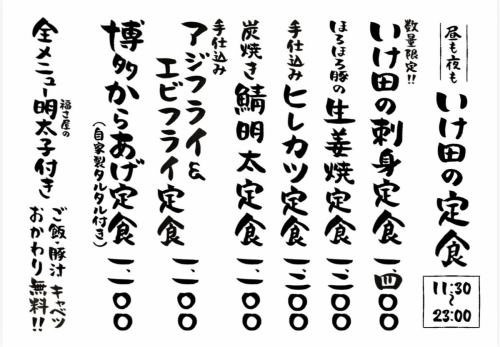 昼も夜も
いけ田の定食
11:30
〜
23:00
数量限定!!
いけ田の刺身定食 一、四〇〇
ほろほろ豚の
生姜焼定食 一、二〇〇
手仕込み
ヒレカツ定食 一、二〇〇
炭焼き鯖明太定食 一、一〇〇
手仕込み
アジフライ&
エビフライ定食 一、一〇〇
博多からあげ定食 一、一〇〇
(自家製タルタル付き)
福さ屋の
全メニュー明太子付き
ご飯・豚汁 キャベツ
おかわり無料!!